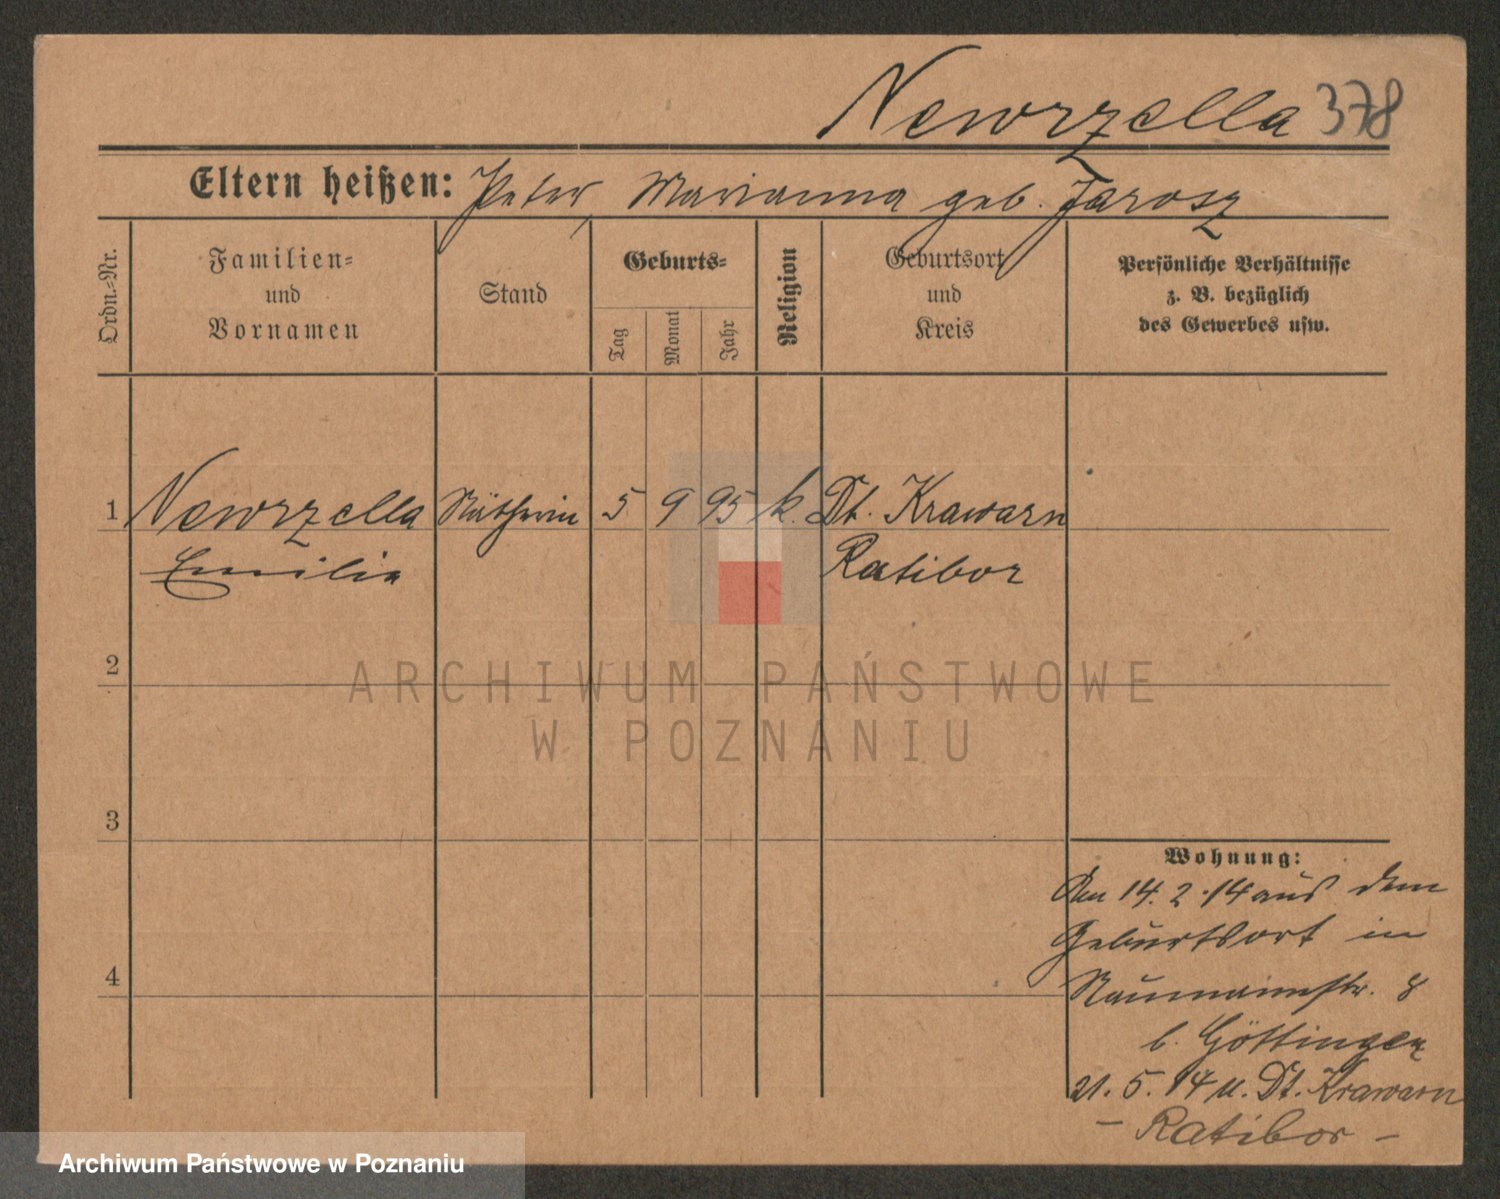 Newrzella 378
Eltern heißen: Peter, Marianna geb. Jarosz
Ordn.-Nr.
Familien-
und
Vornamen
Stand
Geburts-
Tag
Monat
Jahr
Religion
Geburtsort
und
Kreis
Persönliche Verhältnisse
z. B. bezüglich
des Gewerbes usw.
1 Newrzella Nätherin 5 9 95 k. Dt. Krawarn
Emilie Ratibor
2
3
4
Wohnung:
Am 14.2.14 aus dem
Geburtsort in
Naumannstr. 8
b. Göttinger
21.5.14 n. Dt. Krawarn
- Ratibor -
ARCHIWUM PAŃSTWOWE
W POZNANIU
Archiwum Państwowe w Poznaniu